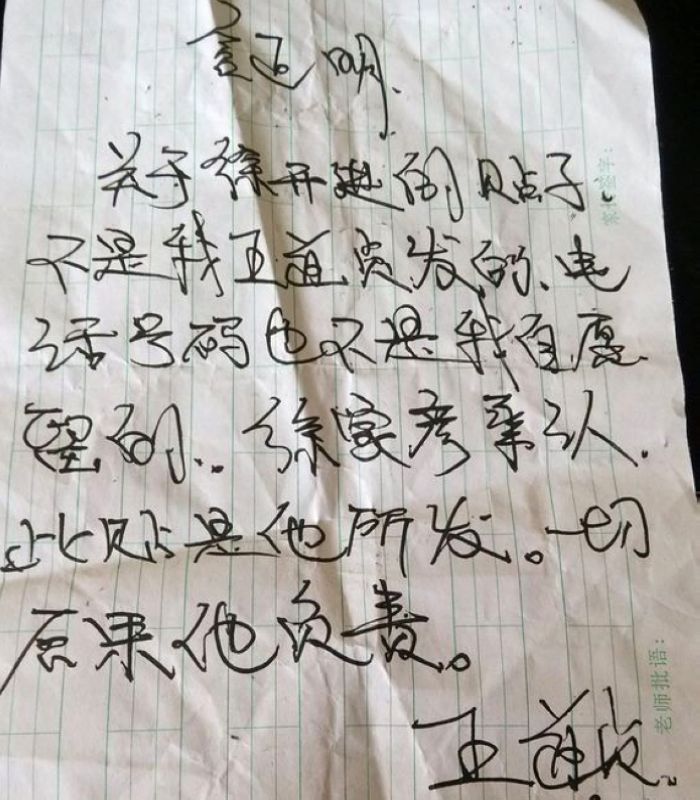 证明
关于徐开进的贴子
不是我王道贞发的、电
话号码也不是我自愿
留的..徐家彦承认.
此贴是他所发。一切
后果他负责。
王道贞
家长签字:
老师批语: